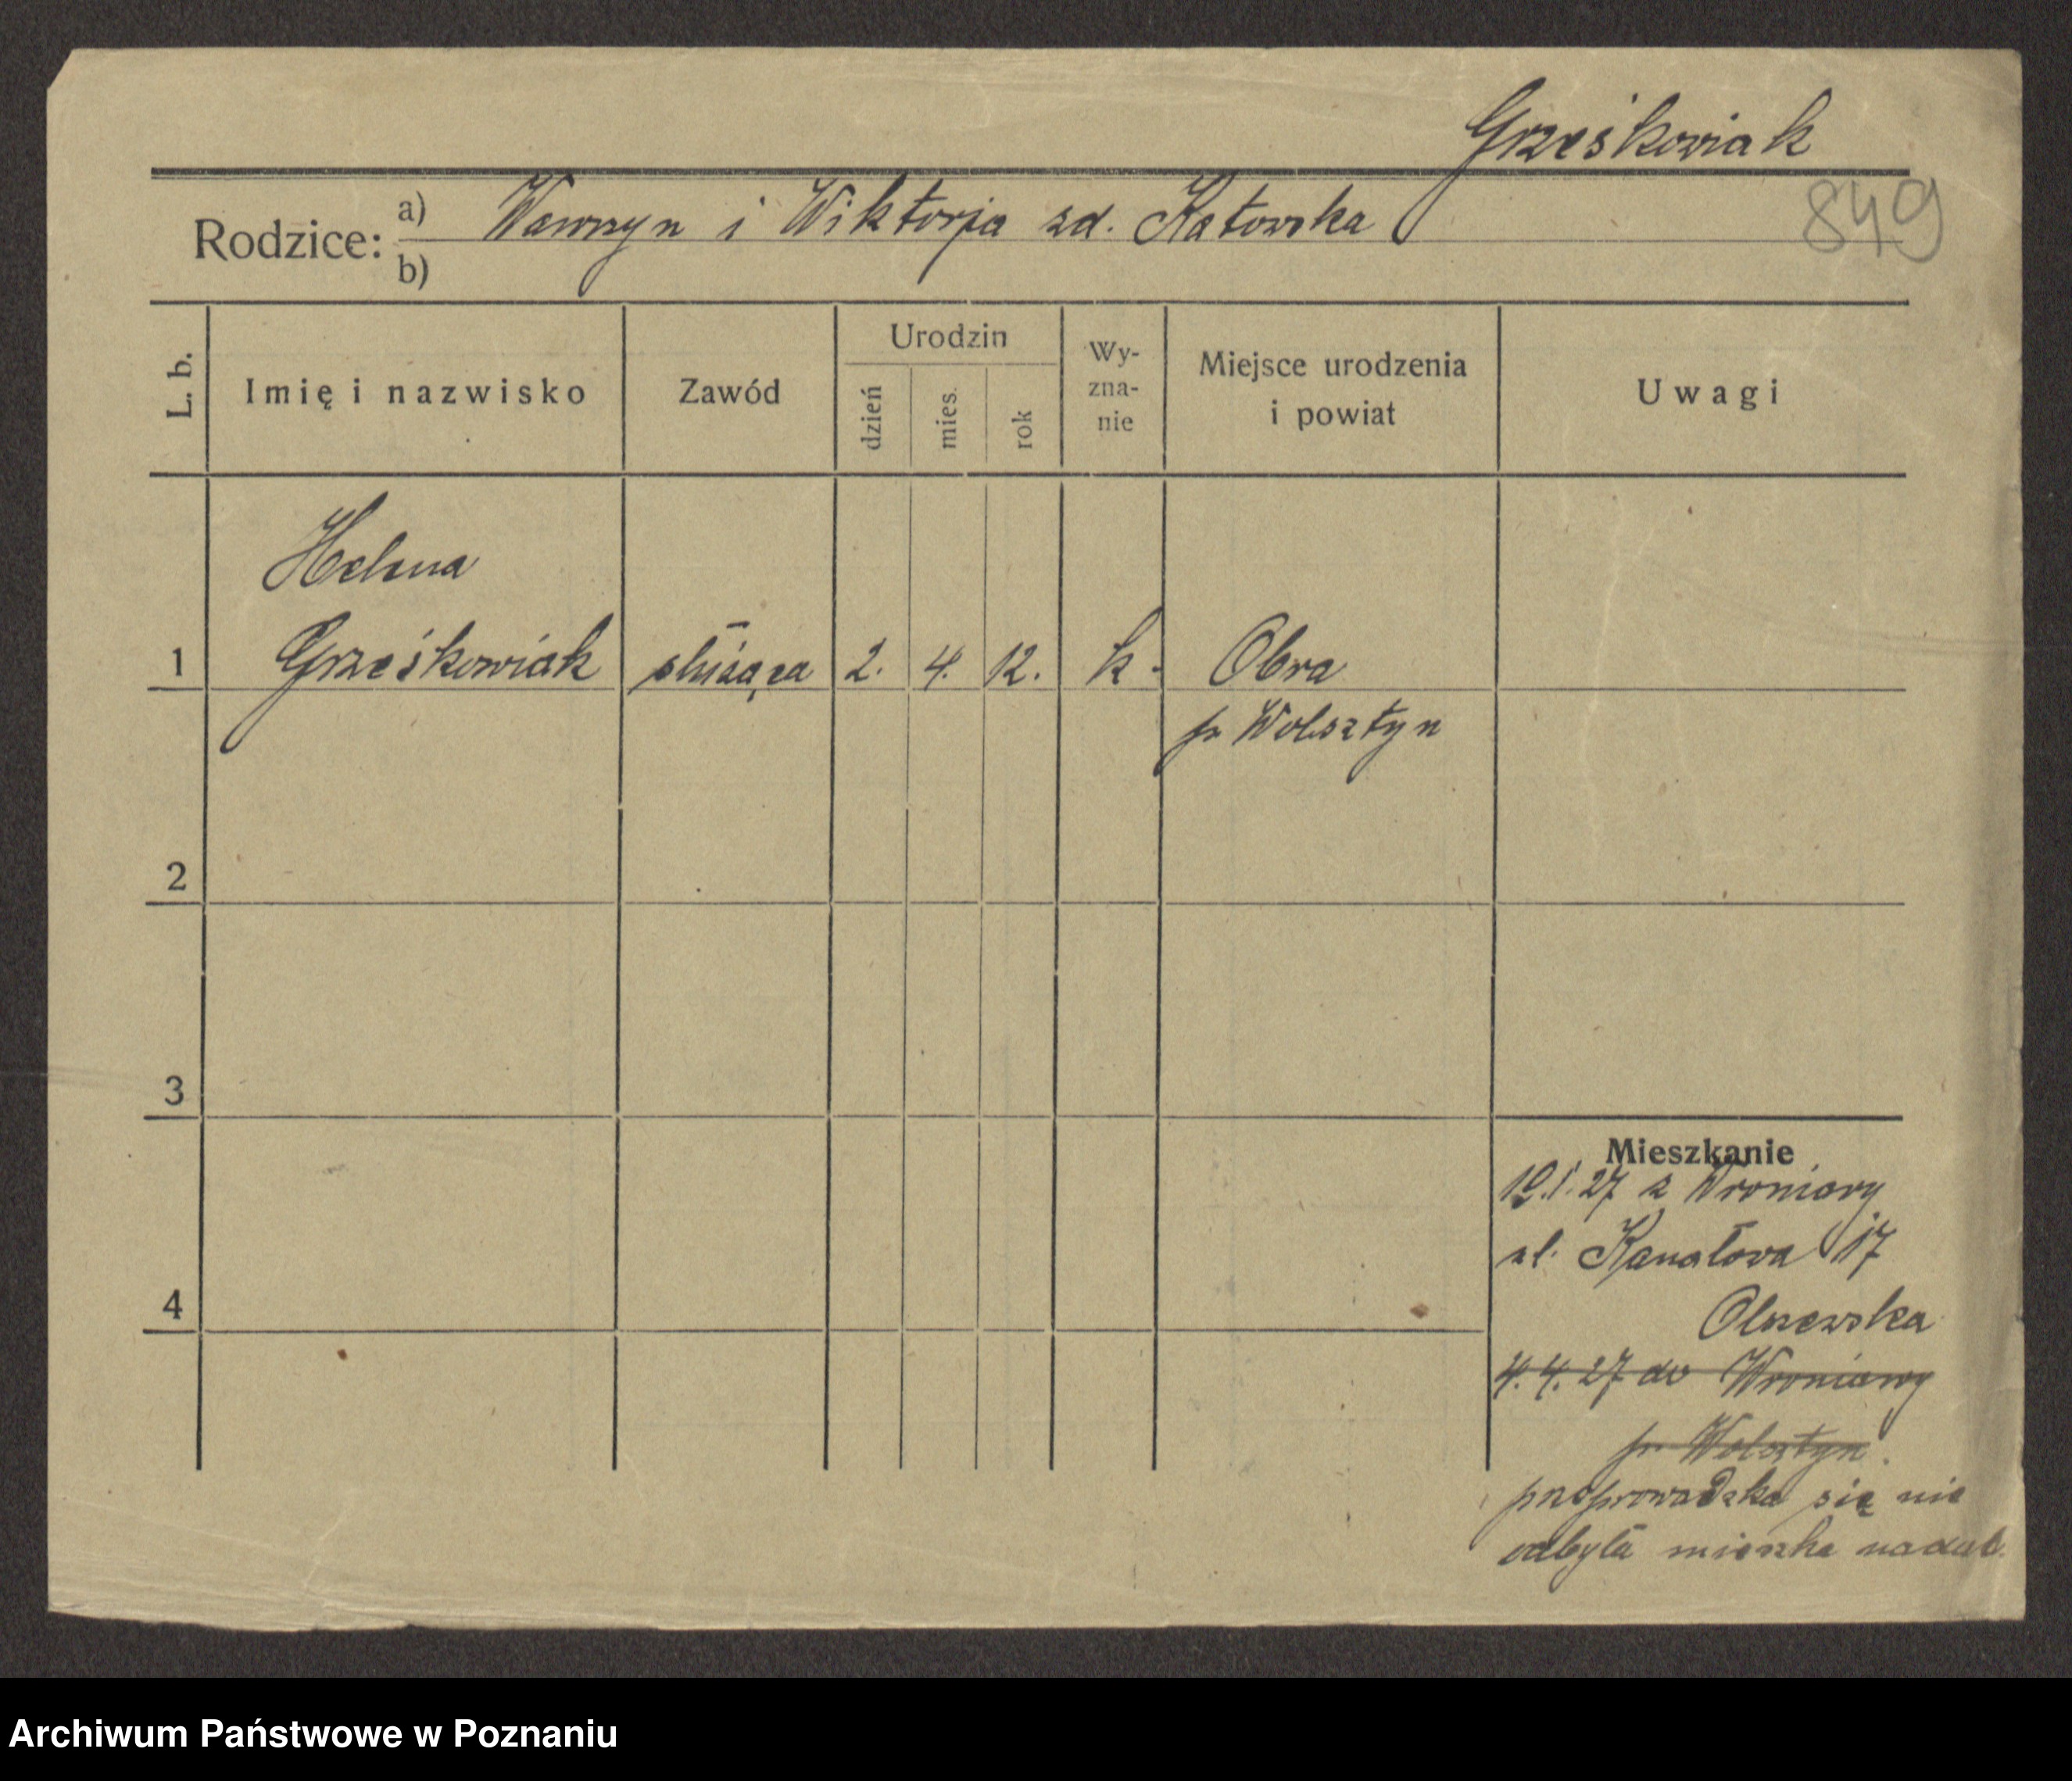 Grześkowiak
849
Rodzice: a) Wawrzyn i Wiktorja zd. Katowska
b)
L. b. Imię i nazwisko Zawód Urodzin dzień mies. rok Wy-zna-nie Miejsce urodzenia i powiat Uwagi
Helena
1 Grześkowiak służąca 2. 4. 12. k. Obra
p. Wolsztyn
2
3
Mieszkanie
10.1.27 z Wroniawy
ul. Kanałowa 17
4
Olszewska
4.4.27 do Wroniawy
p. Wolsztyn.
przeprowadzka się nie
odbyła mieszka nadal.
Archiwum Państwowe w Poznaniu